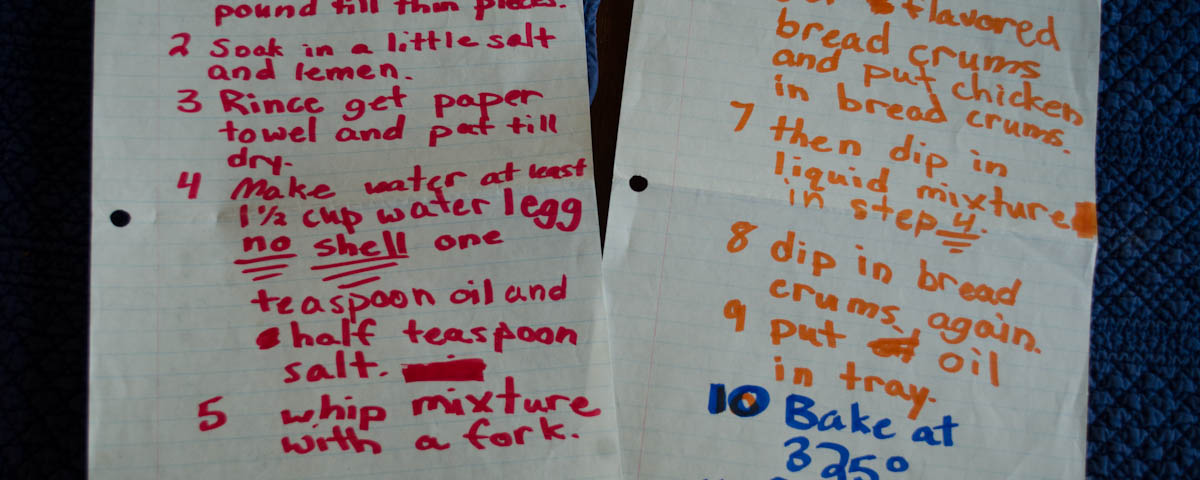 pound till thin pieces.
2 Soak in a little salt
and lemen.
3 Rince get paper
towel and pat till
dry.
4 Make water at least
1½ cup water 1egg
no shell one
teaspoon oil and
half teaspoon
salt.
5 whip mixture
with a fork.
flavored
bread crums
and put chicken
in bread crums.
7 then dip in
liquid mixture
in step 4.
8 dip in bread
crums again.
9 put oil
in tray.
10 Bake at
325°